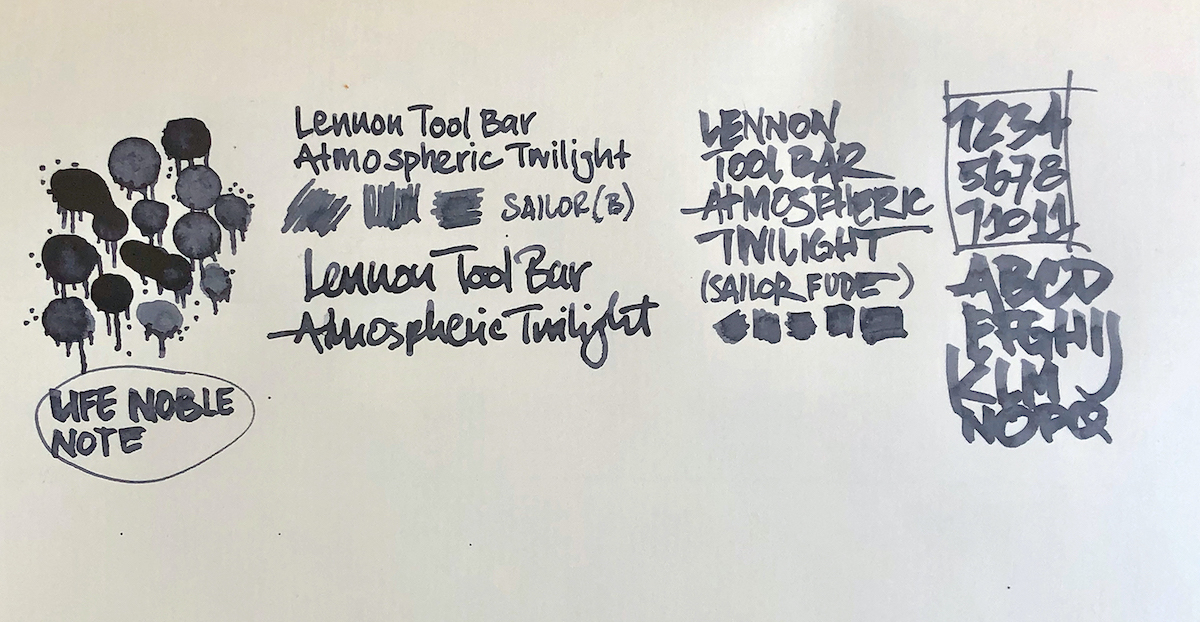 Lennon Tool Bar
Atmospheric Twilight
SAILOR (B)
Lennon Tool Bar
Atmospheric Twilight
LIFE NOBLE
NOTE
LENNON
TOOL BAR
ATMOSPHERIC
TWILIGHT
(SAILOR FUDE)
1234
5678
91011
ABCD
EFGHIJ
KLM
NOPQ